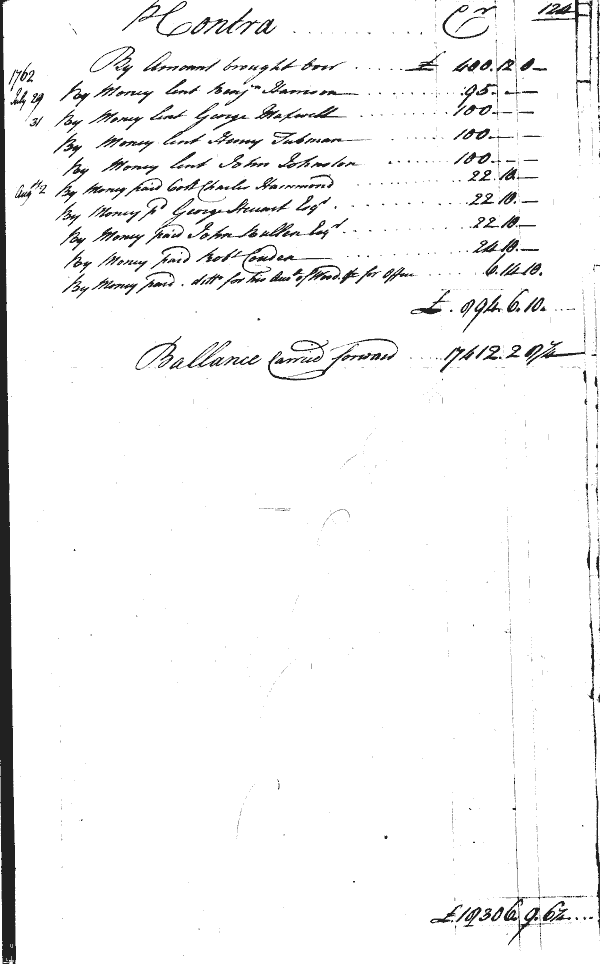 Contra Cr 124
1762 By Amount brought over £ 400.12.0
July 29 By Money lent Benjn Harrison 95.-.-
31 By Money lent George Maxwell 100.-.-
By Money lent Henry Tubman 100.-.-
By Money lent John Johnston 100.-.-
Augst 2 By Money paid Colo Charles Hammond 22.10.-
By Money pd George Steuart Esqr. 22.10.-
By Money paid John Bullen Esqr 22.10.-
By Money paid Robt Couden 24.10.-
By Money paid ditto for his Acct of Wood &c for Office 6.14.10.
£ 894.6.10.
Ballance Carried forward 7412.2
£ 19306.9.6½